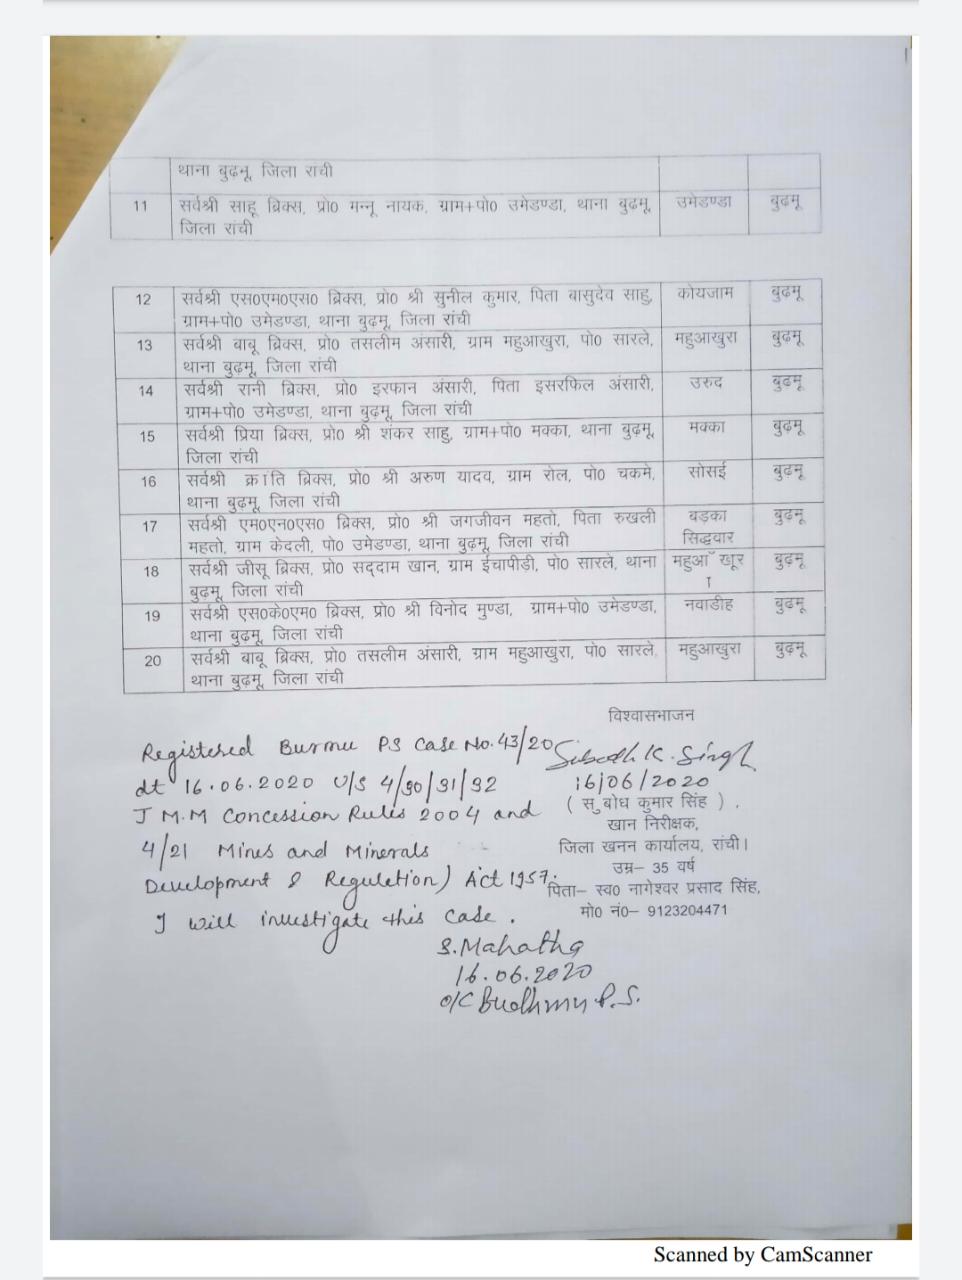 थाना बुढ़मू, जिला रांची
11 सर्वश्री साहू ब्रिक्स, प्रो0 मन्नू नायक, ग्राम+पो0 उमेडण्डा, थाना बुढ़मू, उमेडण्डा बुढ़मू
जिला रांची
12 सर्वश्री एस0एम0एस0 ब्रिक्स, प्रो0 श्री सुनील कुमार, पिता बासुदेव साहु, कोयजाम बुढ़मू
ग्राम+पो0 उमेडण्डा, थाना बुढ़मू, जिला रांची
13 सर्वश्री बाबू ब्रिक्स, प्रो0 तसलीम अंसारी, ग्राम महुआखुरा, पो0 सारले, महुआखुरा बुढ़मू
थाना बुढ़मू, जिला रांची
14 सर्वश्री रानी ब्रिक्स, प्रो0 इरफान अंसारी, पिता इसरफिल अंसारी, उरुद बुढ़मू
ग्राम+पो0 उमेडण्डा, थाना बुढ़मू, जिला रांची
15 सर्वश्री प्रिया ब्रिक्स, प्रो0 श्री शंकर साहु, ग्राम+पो0 मक्का, थाना बुढ़मू, मक्का बुढ़मू
जिला रांची
16 सर्वश्री क्रांति ब्रिक्स, प्रो0 श्री अरुण यादव, ग्राम रोल, पो0 चकमे, सोसई बुढ़मू
थाना बुढ़मू, जिला रांची
17 सर्वश्री एम0एन0एस0 ब्रिक्स, प्रो0 श्री जगजीवन महतो, पिता रुखली बड़का बुढ़मू
महतो, ग्राम केदली, पो0 उमेडण्डा, थाना बुढ़मू, जिला रांची सिद्धवार
18 सर्वश्री जीसू ब्रिक्स, प्रो0 सद्दाम खान, ग्राम ईचापीड़ी, पो0 सारले, थाना महुआॅ खूर बुढ़मू
बुढ़मू, जिला रांची ा
19 सर्वश्री एस0के0एम0 ब्रिक्स, प्रो0 श्री विनोद मुण्डा, ग्राम+पो0 उमेडण्डा, नवाडीह बुढ़मू
थाना बुढ़मू, जिला रांची
20 सर्वश्री बाबू ब्रिक्स, प्रो0 तसलीम अंसारी, ग्राम महुआखुरा, पो0 सारले, महुआखुरा बुढ़मू
थाना बुढ़मू, जिला रांची
विश्वासभाजन
Registered Burmu PS Case No. 43/20
dt 16.06.2020 U/S 4/30/31/32
J M.M Concession Rules 2004 and
4/21 Mines and Minerals
Development & Regulation) Act 1957.
I will investigate this case.
Subodh K. Singh
16/06/2020
( सुबोध कुमार सिंह ) .
खान निरीक्षक,
जिला खनन कार्यालय, रांची।
उम्र– 35 वर्ष
पिता– स्व0 नागेश्वर प्रसाद सिंह,
मो0 नं0– 9123204471
S. Mahatha
16.06.2020
o/c Budhmu P.S.
Scanned by CamScanner